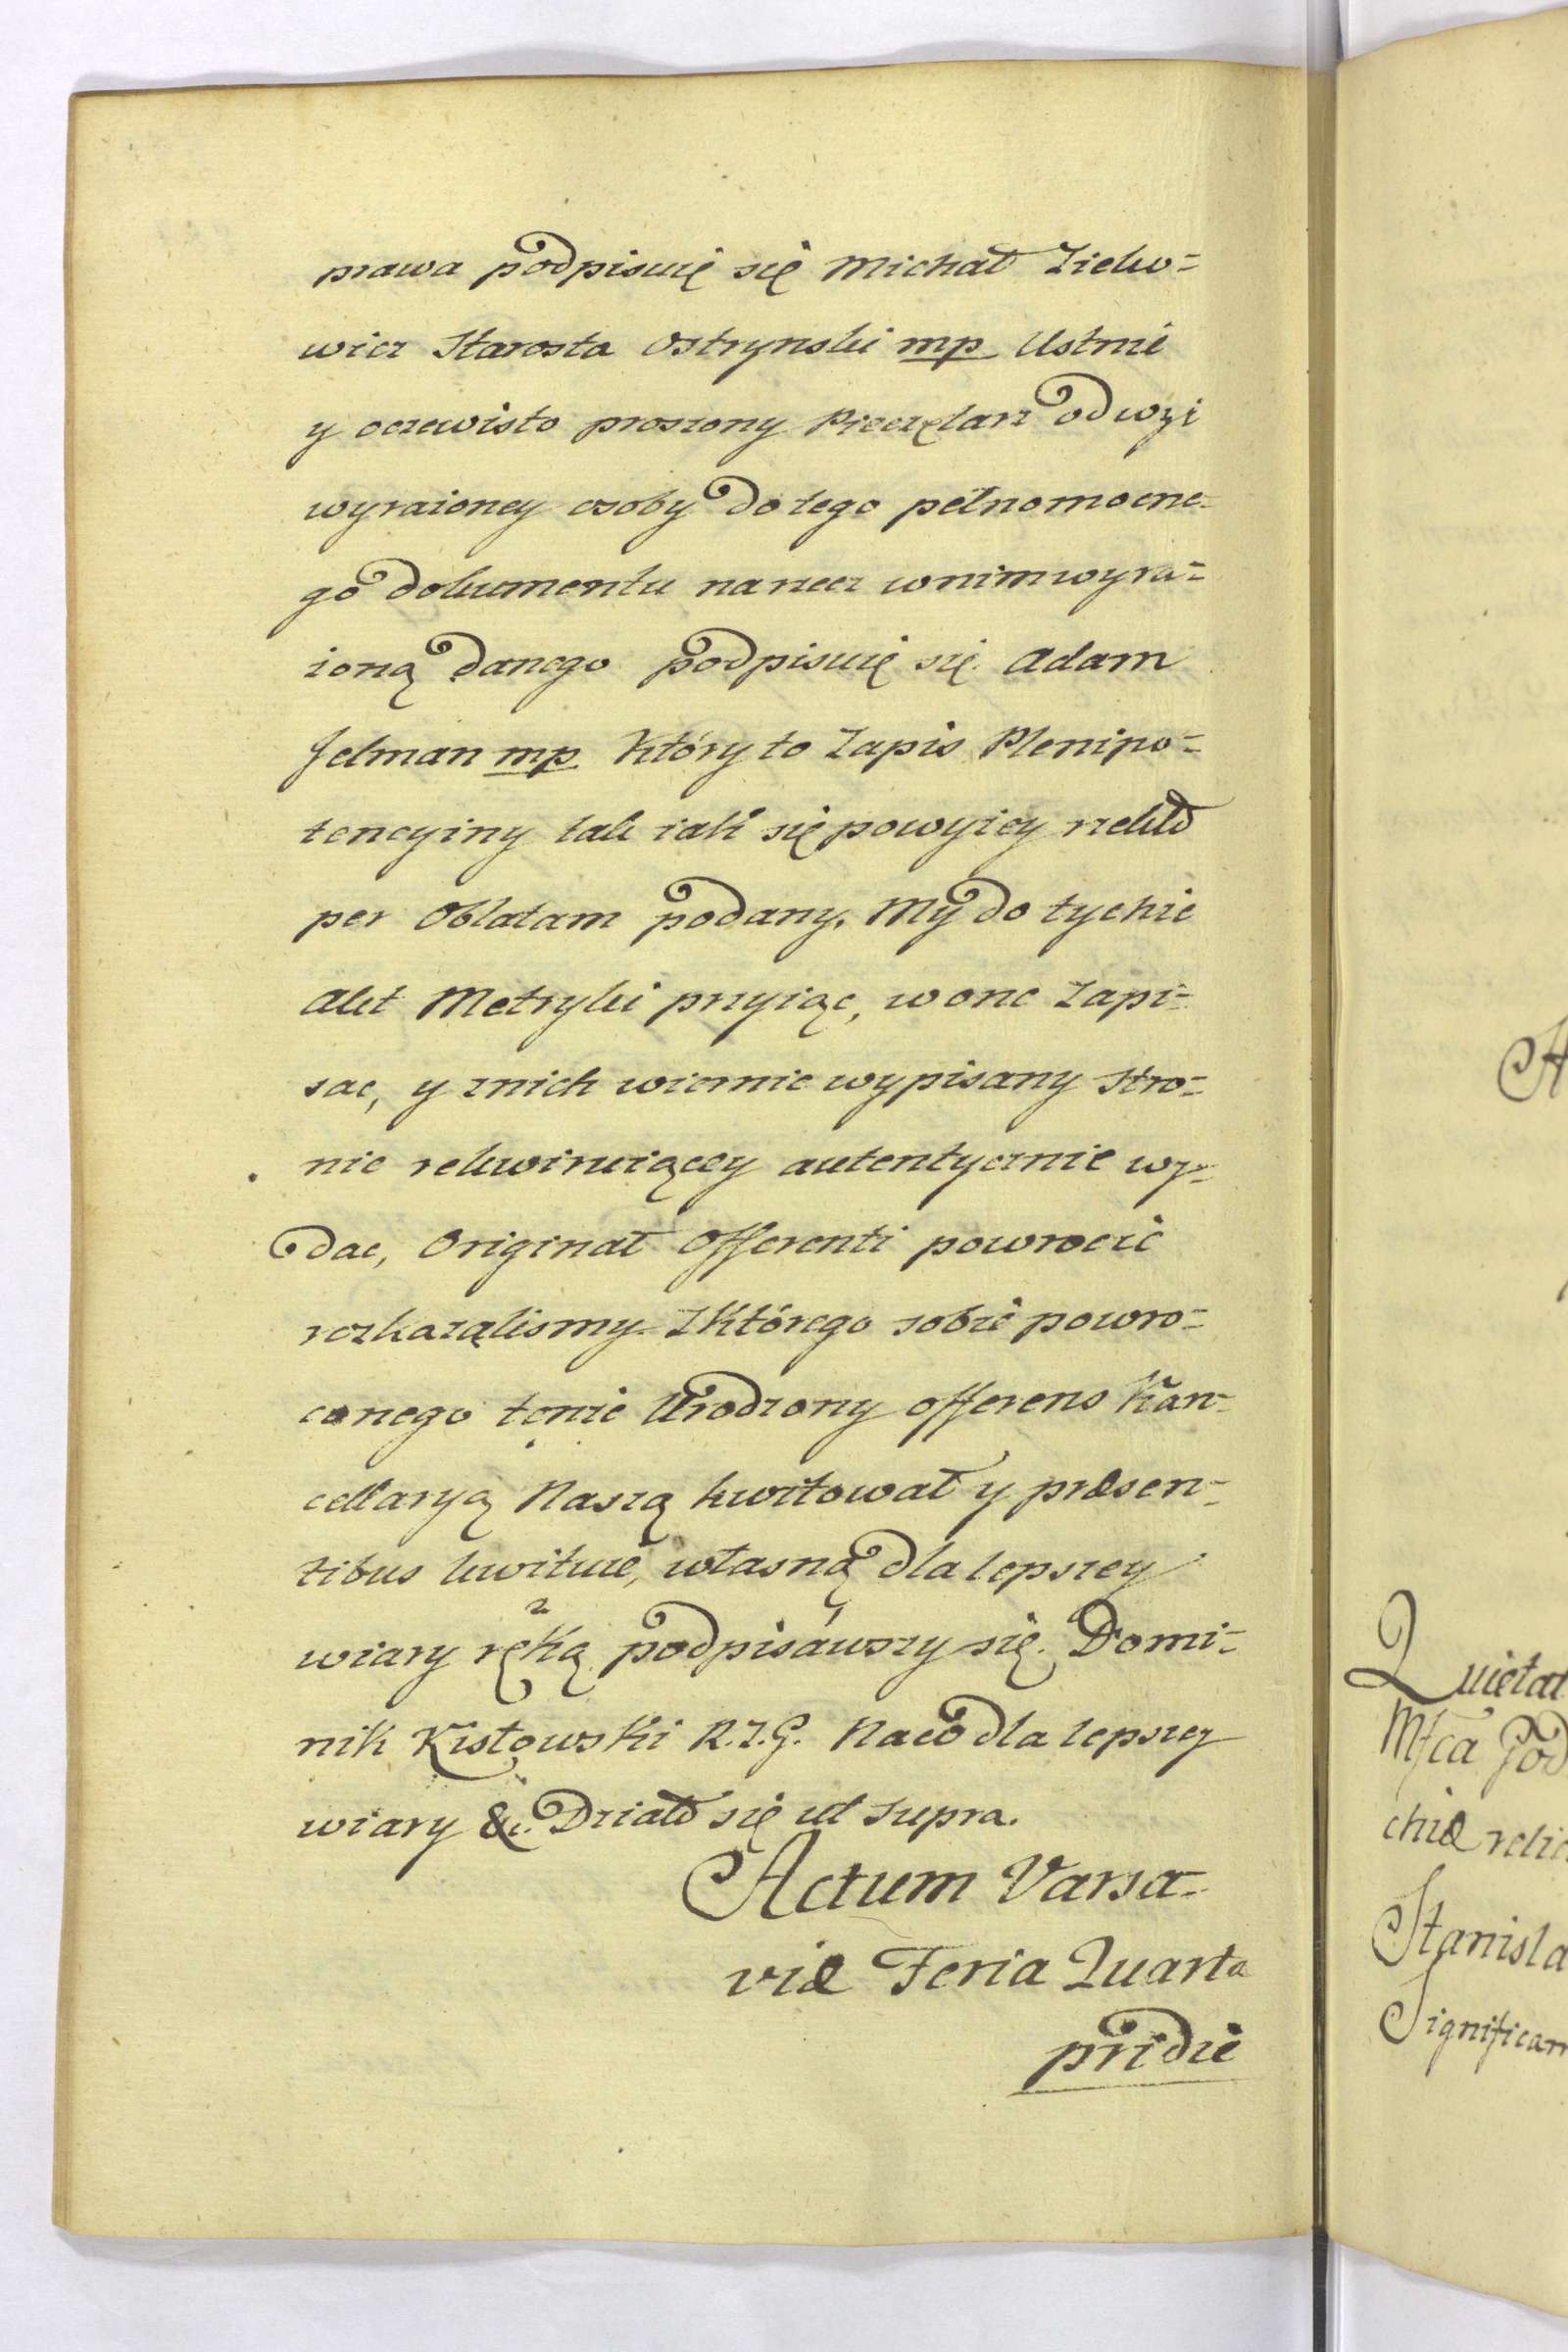 prawa podpisuię się Michał Zieko=
wicz Starosta Ostrynski mp Ustnie
y oczewisto proszony Pieczętarz od wyż
wyrażoney osoby do tego pełnomocne=
go dokumentu na rzecz w nim wyra=
żoną danego podpisuię się Adam
Jelman mp Który to Zapis Plenipo=
tencyiny tak iak się powyżey rzekło
per Oblatam podany. My do tychże
Akt Metryki przyiąc, w one Zapi=
sac, y z nich wiernie wypisany Stro=
nie rekwiruiącey autentycznie wy=
dac, Originał Offerenti powrocic
rozkazalismy. Z Którego sobie powro=
conego tenże Urodzony offerens Kan=
cellaryą Naszą kwitował y præsen=
tibus kwituie, własną dla lepszey
wiary ręką podpisawszy się. Domi=
nik Kistowski R.Z.G. Naco dla lepszey
wiary &c. Działo się ut supra.
Actum Varsa=
viæ Feria Quarta
pridie
A
Quietat
Mfca God
chiæ relic
Stanisla
Significam